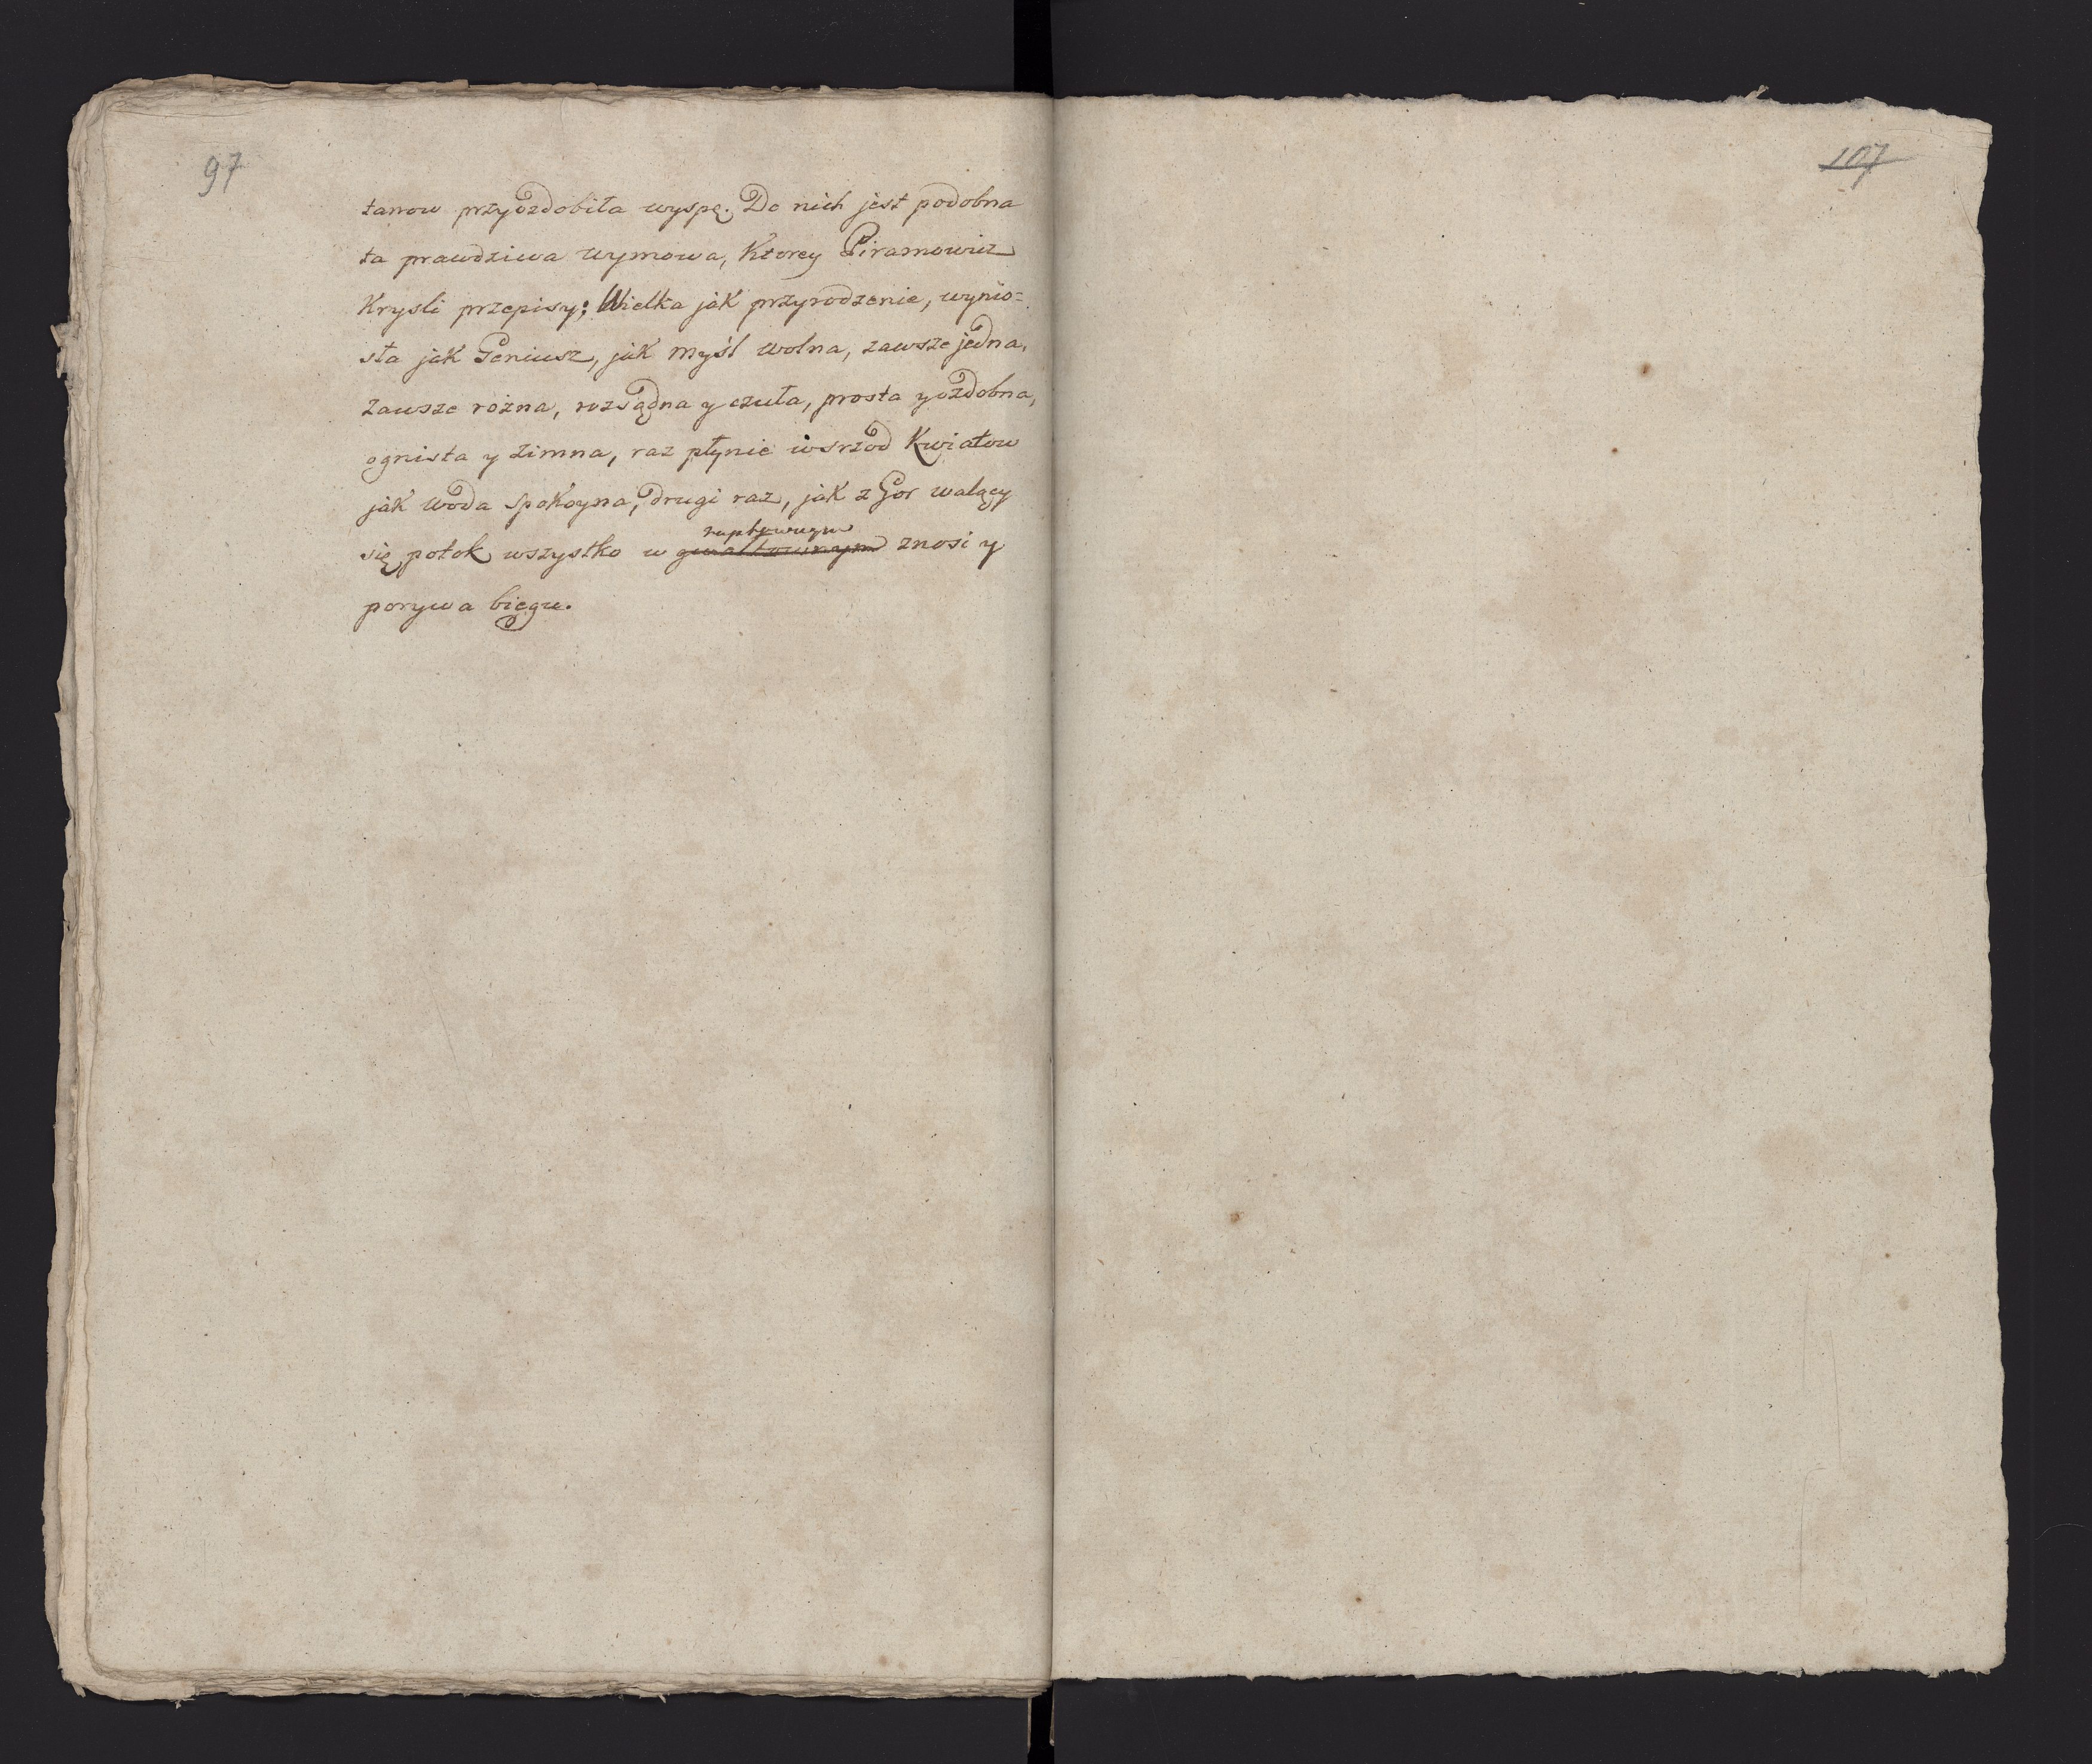 97
tanow przyozdobiła wyspę. Do nich jest podobna
ta prawdziwa wymowa, Ktorey Piramowicz
Krysli przepisy; Wielka jak przyrodzenie, wynio=
sła jak Geniusz, jak myśl wolna, zawsze jedna,
zawsze rożna, rozsądna y czuła, prosta y ozdobna,
ognista y zimna, raz płynie wsrzod Kwiatow
jak woda spokoyna, drugi raz, jak z Gor walący
raptownym
się potok wszystko w gwałtownym znosi y
porywa biegu.
107